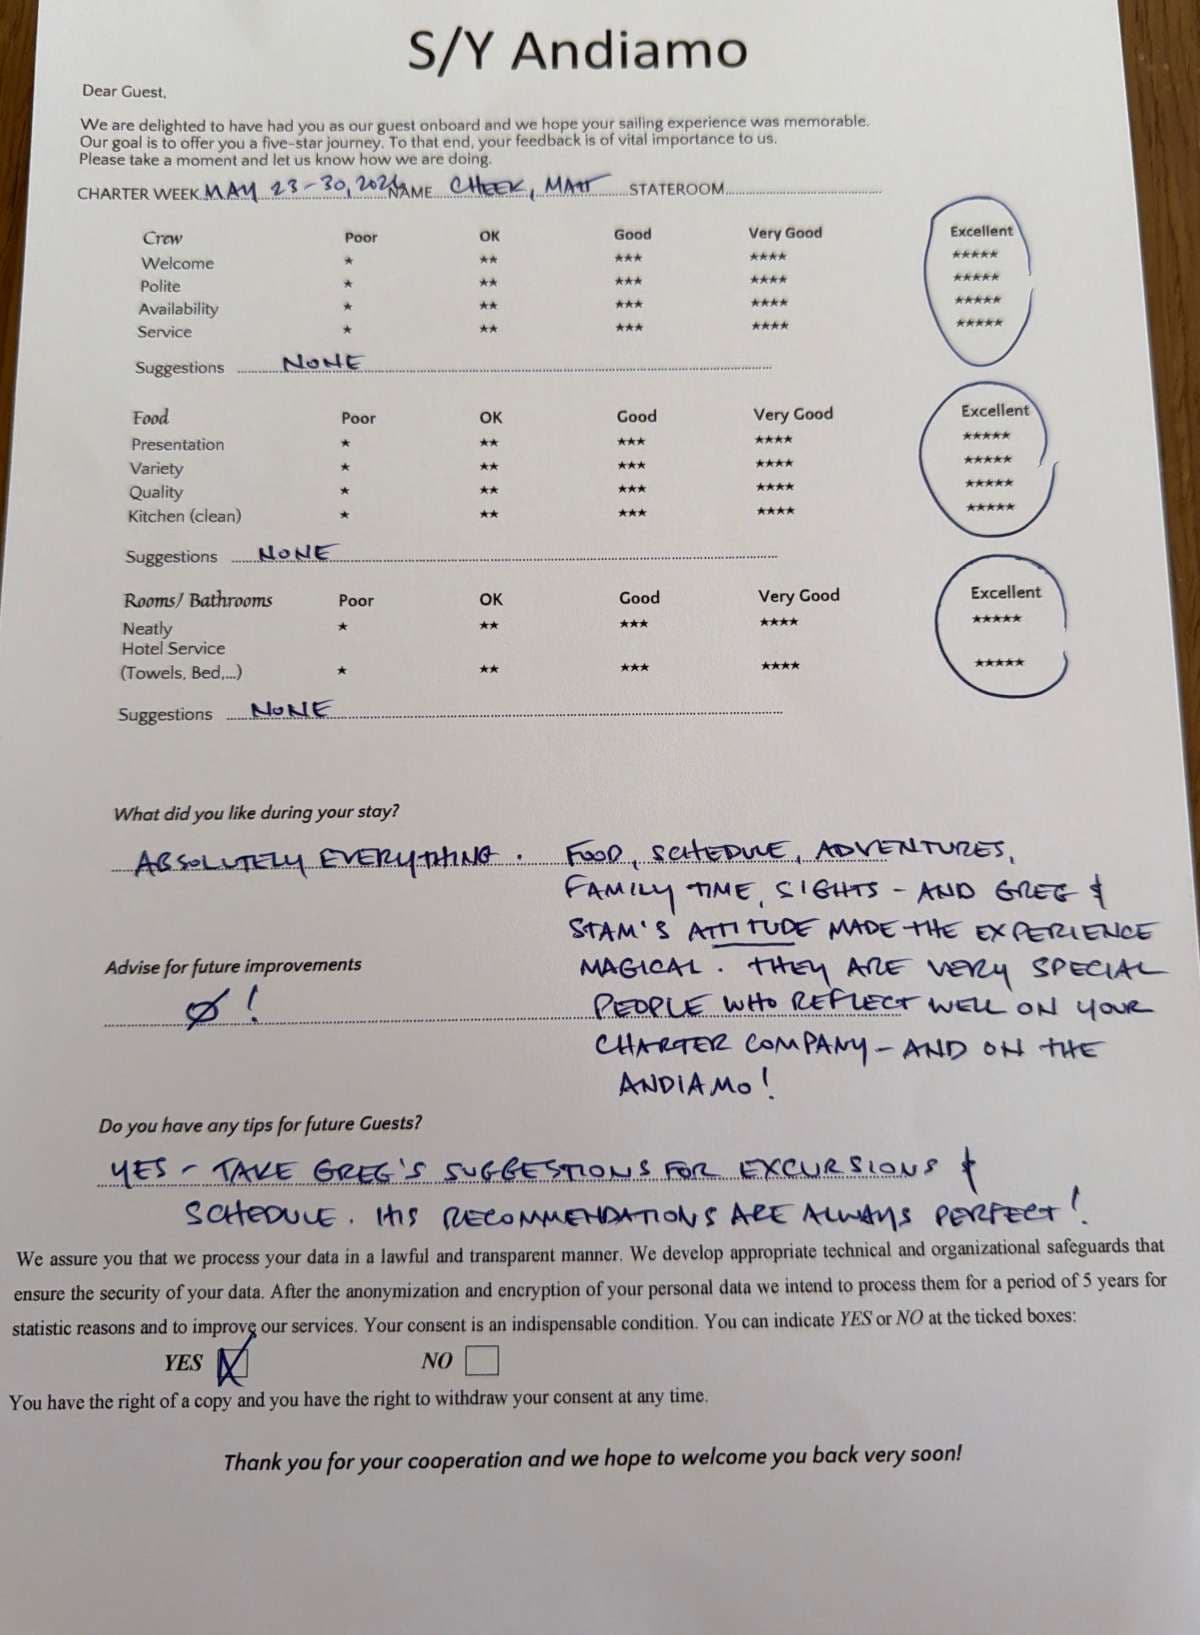 S/Y Andiamo
Dear Guest,
We are delighted to have had you as our guest onboard and we hope your sailing experience was memorable.
Our goal is to offer you a five-star journey. To that end, your feedback is of vital importance to us.
Please take a moment and let us know how we are doing.
CHARTER WEEK MAY 23-30, NAME CHEEK, MATT STATEROOM
Crew Poor OK Good Very Good Excellent
Welcome ★ ★★ ★★★ ★★★★ ★★★★★
Polite ★ ★★ ★★★ ★★★★ ★★★★★
Availability ★ ★★ ★★★ ★★★★ ★★★★★
Service ★ ★★ ★★★ ★★★★ ★★★★★
Suggestions NONE
Food Poor OK Good Very Good Excellent
Presentation ★ ★★ ★★★ ★★★★ ★★★★★
Variety ★ ★★ ★★★ ★★★★ ★★★★★
Quality ★ ★★ ★★★ ★★★★ ★★★★★
Kitchen (clean) ★ ★★ ★★★ ★★★★ ★★★★★
Suggestions NONE
Rooms/ Bathrooms Poor OK Good Very Good Excellent
Neatly ★ ★★ ★★★ ★★★★ ★★★★★
Hotel Service
(Towels, Bed,...) ★ ★★ ★★★ ★★★★ ★★★★★
Suggestions NONE
What did you like during your stay?
ABSOLUTELY EVERYTHING. FOOD, SCHEDULE, ADVENTURES,
FAMILY TIME, SIGHTS - AND GREG &
STAM'S ATTITUDE MADE THE EXPERIENCE
MAGICAL. THEY ARE VERY SPECIAL
PEOPLE WHO REFLECT WELL ON YOUR
CHARTER COMPANY - AND ON THE
ANDIAMO!
Advise for future improvements
Ø!
Do you have any tips for future Guests?
YES - TAKE GREG'S SUGGESTIONS FOR EXCURSIONS &
SCHEDULE. HIS RECOMMENDATIONS ARE ALWAYS PERFECT!
We assure you that we process your data in a lawful and transparent manner. We develop appropriate technical and organizational safeguards that
ensure the security of your data. After the anonymization and encryption of your personal data we intend to process them for a period of 5 years for
statistic reasons and to improve our services. Your consent is an indispensable condition. You can indicate YES or NO at the ticked boxes:
YES X NO
You have the right of a copy and you have the right to withdraw your consent at any time.
Thank you for your cooperation and we hope to welcome you back very soon!